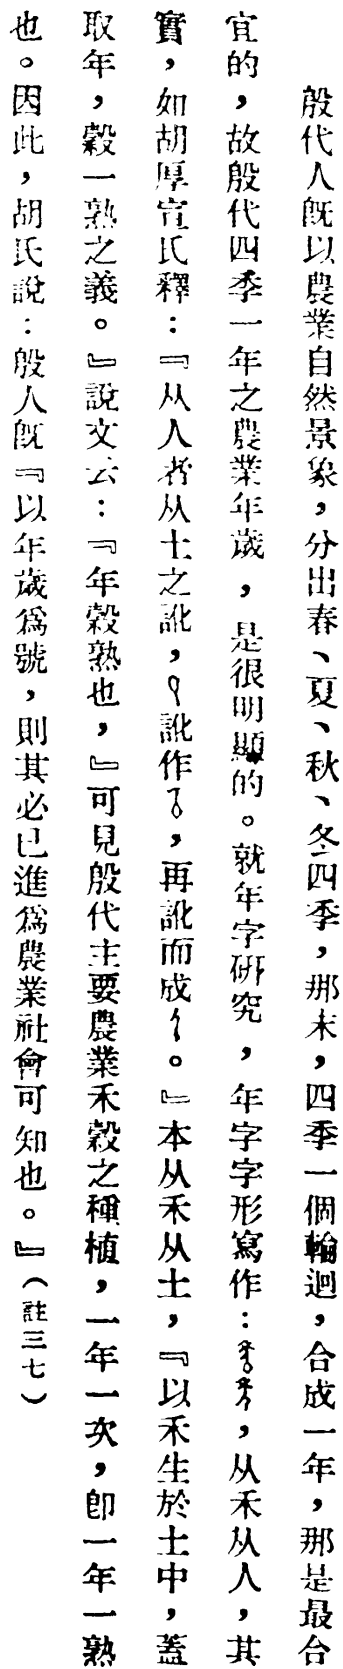 殷代人旣以農業自然景象，分出春、夏、秋、冬四季，那末，四季一個輪迴，合成一年，那是最合
宜的，故殷代四季一年之農業年歲，是很明顯的。就年字研究，年字字形寫作：，从禾从人，其
實，如胡厚宣氏釋：『从人者从土之訛，訛作，再訛而成。』本从禾从土，『以禾生於土中，蓋
取年，穀一熟之義。』說文云：『年穀熟也，』可見殷代主要農業禾穀之種植，一年一次，卽一年一熟
也。因此，胡氏說：殷人旣『以年歲爲號，則其必已進爲農業社會可知也。』（註三七）